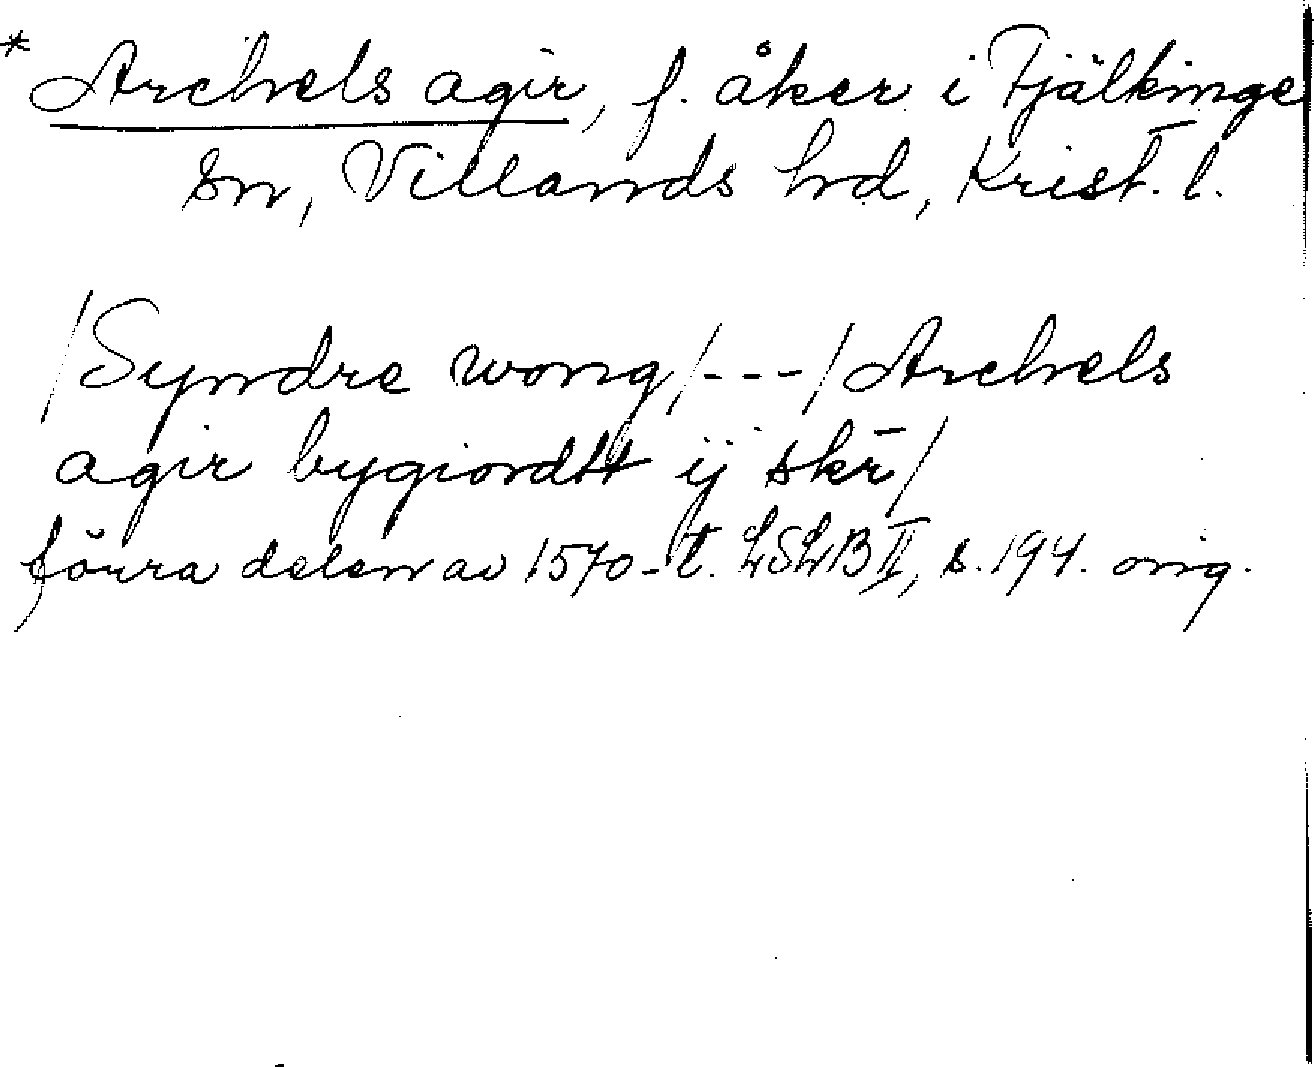 * Archels agir, f. åker i Fjälkinge
sn, Villands hd, Krist. l.
/Syndre wong/---/Archels
agir bygiordtt ij skr̄/
förra delen av 1570-t. LSLB II, s. 194. orig.